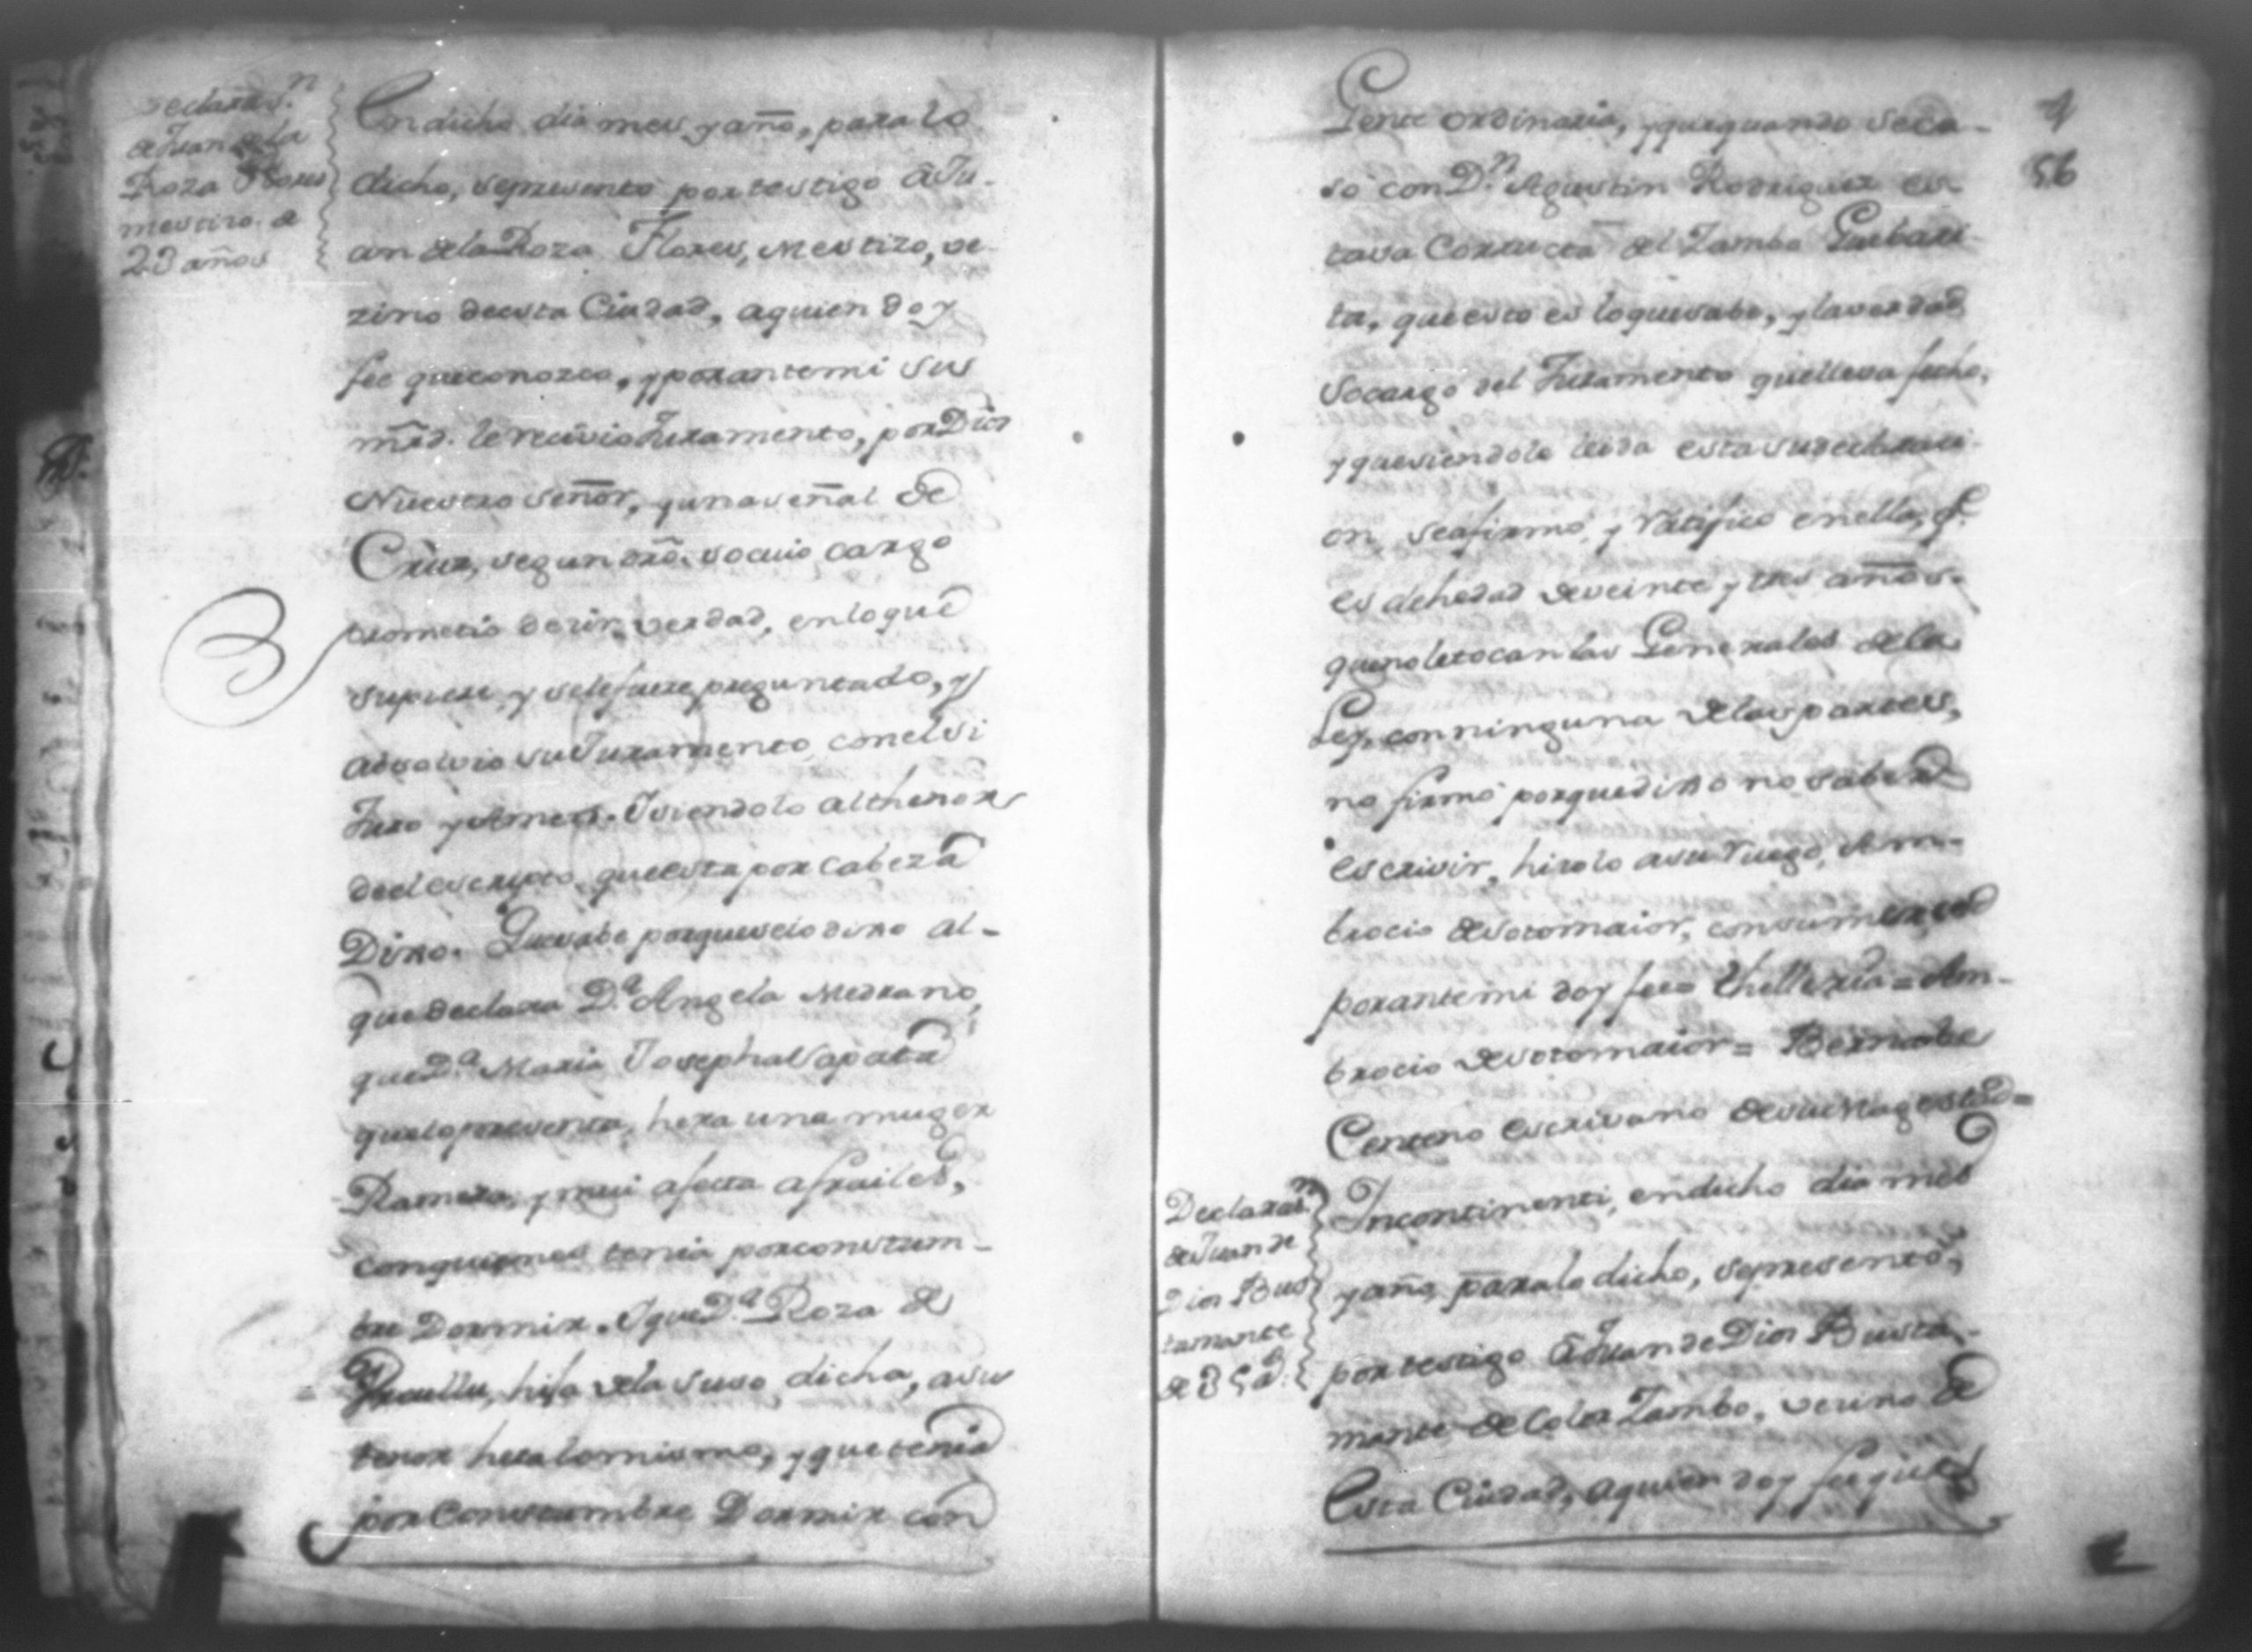 Declaras.n
de Juan de la
Roza Flores
mestizo. de
23 años
En dicho dia mes, y año, para lo
dicho, se presento por testigo a Ju-
an de la Roza Flores, Mestizo, ve-
zino de esta Ciudad, a quien doy
fee que conozco, y por ante mi sus
mrd. le reciuio Juramento, por Dios
Nuestro Señor, y una señal de
Cruz, segun dro. so cuio cargo
prometio dezir verdad, en lo que
supiere y se le fuere preguntado, y
absolvio su Juramento, con el si
Juro y Amen. I siendolo al thenor
de el escripto, que esta por cabeza
Dixo. Que sabe porque se lo dixo al-
que declara D.a Angela Medrano,
que D.a Maria Josepha Sapata
que lo presenta, hera una muger
Ramera, y mui afecta a frailes,
con quienes tenia por constum-
bre Dormir. I que D.a Roza de
hija de la suso dicha, a su
tenor hera lo mismo, y que tenia
por Constumbre Dormir con
4
56
Gente ordinaria, y que quando se ca-
so con D.n Agustin Rodriguez es
tava Corructa del Zambo
ta, que esto es lo que sabe, y la verdad
so cargo del Juramento que lleva fecho,
y que siendole leida esta su declaraci-
on, se afirmó, y ratifico en ella, q.e
es de hedad de veinte y tres años.
que no le tocan las Generales de la
Ley, con ninguna de las partes,
no firmó porque dixo no saber
escrivir, hizolo a su ruego, Am-
brocio de sotomaior, con su merced
por ante mi doy fee = Thelleria = Am-
brocio de sotomaior = Bernabe
Centeno escrivano de su Magestad =
Declaras.n
de Juan de
Dios Bus
tamante
de 35 a.s
Incontinenti, en dicho dia mes
y año, para lo dicho, se presentó,
por testigo a Juan de Dios Busta-
mante de Color Zambo, vezino de
Esta Ciudad, a quien doy fee que